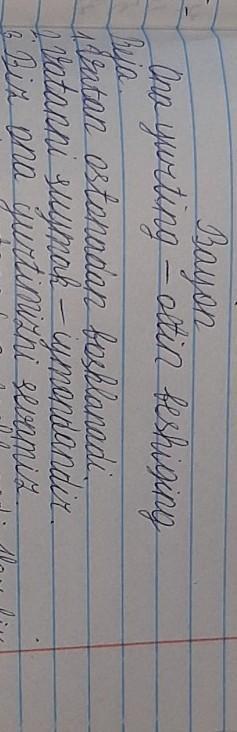 Bayon
Ona yurting – oltin beshiging
Reja.
1. Vatan ostonadan boshlanadi.
2. Vatanni suymak – iymondandir.
3. Biz ona yurtimizni sevamiz.